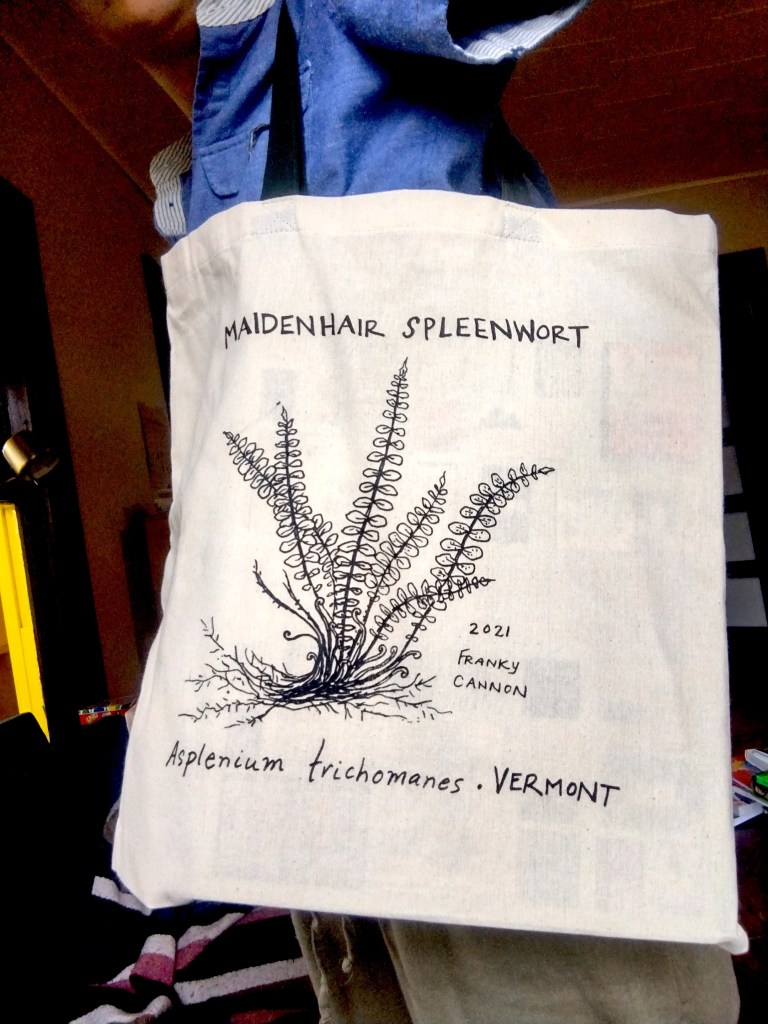 MAIDENHAIR SPLEENWORT
2021
FRANKY
CANNON
Asplenium trichomanes . VERMONT